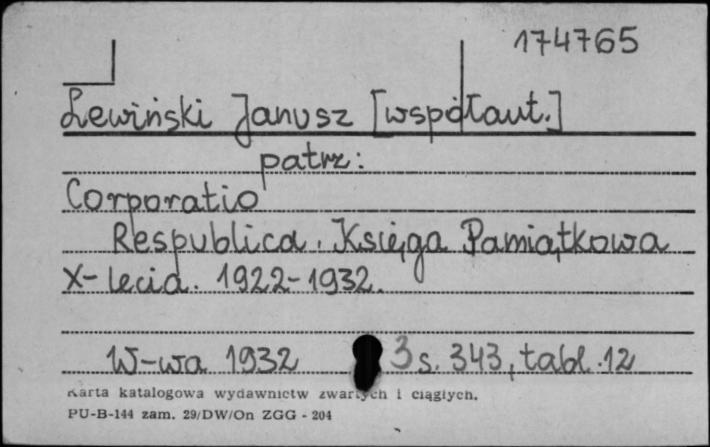 174765
Lewiński Janusz [współaut.]
patrz:
Corporatio
Respublica. Księga Pamiątkowa
X-lecia. 1922-1932.
W-wa 1932 3 s. 343, tabl. 12
Karta katalogowa wydawnictw zwartych i ciągłych.
PU-B-144 zam. 29/DW/On ZGG - 204